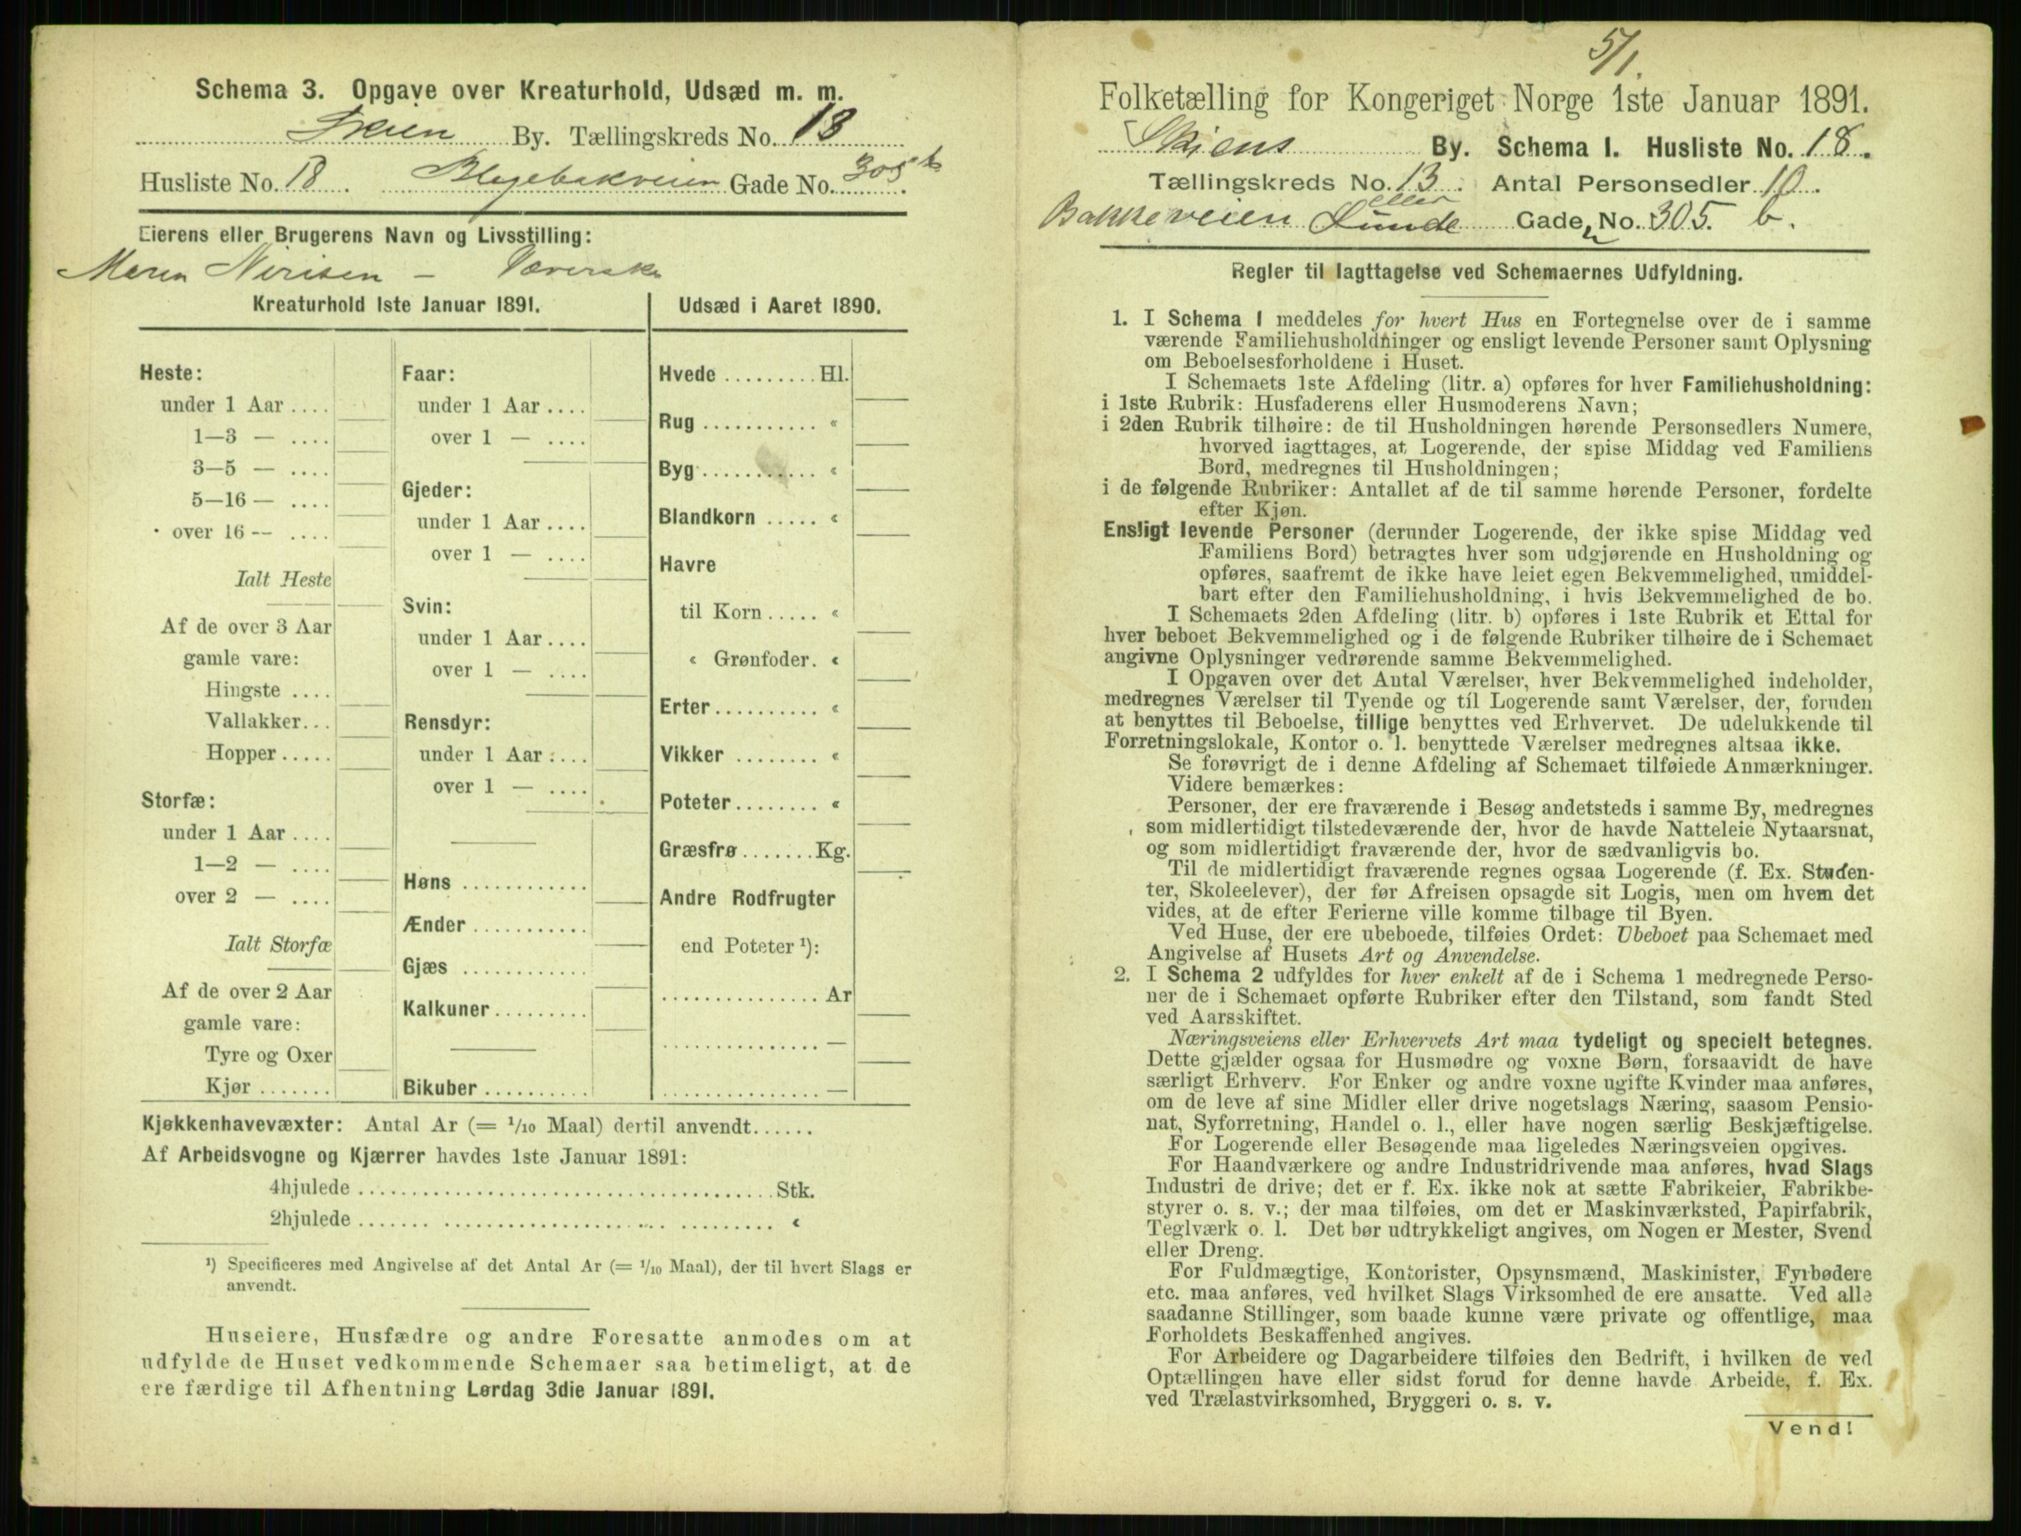 Schema 3. Opgave over Kreaturhold, Udsæd m. m.
Skien By. Tællingskreds No. 13
Husliste No. 18. Blegebakveien Gade No. 305 b.
Eierens eller Brugerens Navn og Livsstilling:
Maren Nirisen – Væverske
Kreaturhold 1ste Januar 1891.
Heste:
under 1 Aar ....
1—3 — ....
3—5 — ....
5—16 — ....
over 16 — ....
Ialt Heste
Af de over 3 Aar
gamle vare:
Hingste ....
Vallakker...
Hopper.....
Storfæ:
under 1 Aar ....
1—2 — ....
over 2 — ....
Ialt Storfæ
Af de over 2 Aar
gamle vare:
Tyre og Oxer
Kjør .......
Faar:
under 1 Aar ....
over 1 — ....
Gjeder:
under 1 Aar ....
over 1 — ....
Svin:
under 1 Aar ....
over 1 — ....
Rensdyr:
under 1 Aar ....
over 1 — ....
Høns ............
Ænder ...........
Gjæs ............
Kalkuner.........
Bikuber ..........
Udsæd i Aaret 1890.
Hvede ......... Hl.
Rug ........... «
Byg ........... «
Blandkorn ..... «
Havre
til Korn ..... «
« Grønfoder. «
Erter.......... «
Vikker ........ «
Poteter........ «
Græsfrø ....... Kg.
Andre Rodfrugter
end Poteter ¹):
............... Ar
............... —
............... —
Kjøkkenhavevæxter: Antal Ar (= 1/10 Maal) dertil anvendt......
Af Arbeidsvogne og Kjærrer havdes 1ste Januar 1891:
4hjulede ....................................... Stk.
2hjulede ....................................... «
¹) Specificeres med Angivelse af det Antal Ar (= 1/10 Maal), der til hvert Slags er
anvendt.
Huseiere, Husfædre og andre Foresatte anmodes om at
udfylde de Huset vedkommende Schemaer saa betimeligt, at de
ere færdige til Afhentning Lørdag 3die Januar 1891.
5/1.
Folketælling for Kongeriget Norge 1ste Januar 1891.
Skiens By. Schema 1. Husliste No. 18.
Tællingskreds No. 13. Antal Personsedler 10.
eller
Bakkeveien Lunde Gade No. 305. b.
Regler til Iagttagelse ved Schemaernes Udfyldning.
1. I Schema 1 meddeles for hvert Hus en Fortegnelse over de i samme
værende Familiehusholdninger og ensligt levende Personer samt Oplysning
om Beboelsesforholdene i Huset.
I Schemaets 1ste Afdeling (litr. a) opføres for hver Familiehusholdning:
i 1ste Rubrik: Husfaderens eller Husmoderens Navn;
i 2den Rubrik tilhøire: de til Husholdningen hørende Personsedlers Numere,
hvorved iagttages, at Logerende, der spise Middag ved Familiens
Bord, medregnes til Husholdningen;
i de følgende Rubriker: Antallet af de til samme hørende Personer, fordelte
efter Kjøn.
Ensligt levende Personer (derunder Logerende, der ikke spise Middag ved
Familiens Bord) betragtes hver som udgjørende en Husholdning og
opføres, saafremt de ikke have leiet egen Bekvemmelighed, umiddel-
bart efter den Familiehusholdning, i hvis Bekvemmelighed de bo.
I Schemaets 2den Afdeling (litr. b) opføres i 1ste Rubrik et Ettal for
hver beboet Bekvemmelighed og i de følgende Rubriker tilhøire de i Schemaet
angivne Oplysninger vedrørende samme Bekvemmelighed.
I Opgaven over det Antal Værelser, hver Bekvemmelighed indeholder,
medregnes Værelser til Tyende og til Logerende samt Værelser, der, foruden
at benyttes til Beboelse, tillige benyttes ved Erhvervet. De udelukkende til
Forretningslokale, Kontor o. l. benyttede Værelser medregnes altsaa ikke.
Se forøvrigt de i denne Afdeling af Schemaet tilføiede Anmærkninger.
Videre bemærkes:
Personer, der ere fraværende i Besøg andetsteds i samme By, medregnes
som midlertidigt tilstedeværende der, hvor de havde Natteleie Nytaarsnat,
og som midlertidigt fraværende der, hvor de sædvanligvis bo.
Til de midlertidigt fraværende regnes ogsaa Logerende (f. Ex. Studen-
ter, Skoleelever), der før Afreisen opsagde sit Logis, men om hvem det
vides, at de efter Ferierne ville komme tilbage til Byen.
Ved Huse, der ere ubeboede, tilføies Ordet: Ubeboet paa Schemaet med
Angivelse af Husets Art og Anvendelse.
2. I Schema 2 udfyldes for hver enkelt af de i Schema 1 medregnede Perso-
ner de i Schemaet opførte Rubriker efter den Tilstand, som fandt Sted
ved Aarsskiftet.
Næringsveiens eller Erhvervets Art maa tydeligt og specielt betegnes.
Dette gjælder ogsaa for Husmødre og voxne Børn, forsaavidt de have
særligt Erhverv. For Enker og andre voxne ugifte Kvinder maa anføres,
om de leve af sine Midler eller drive nogetslags Næring, saasom Pensio-
nat, Syforretning, Handel o. l., eller have nogen særlig Beskjæftigelse.
For Logerende eller Besøgende maa ligeledes Næringsveien opgives.
For Haandværkere og andre Industridrivende maa anføres, hvad Slags
Industri de drive; det er f. Ex. ikke nok at sætte Fabrikeier, Fabrikbe-
styrer o. s. v.; der maa tilføies, om det er Maskinværksted, Papirfabrik,
Teglværk o. l. Det bør udtrykkeligt angives, om Nogen er Mester, Svend
eller Dreng.
For Fuldmægtige, Kontorister, Opsynsmænd, Maskinister, Fyrbødere
etc. maa anføres, ved hvilket Slags Virksomhed de ere ansatte. Ved alle
saadanne Stillinger, som baade kunne være private og offentlige, maa
Forholdets Beskaffenhed angives.
For Arbeidere og Dagarbeidere tilføies den Bedrift, i hvilken de ved
Optællingen have eller sidst forud for denne havde Arbeide, f. Ex.
ved Trælastvirksomhed, Bryggeri o. s. v.
Vend!